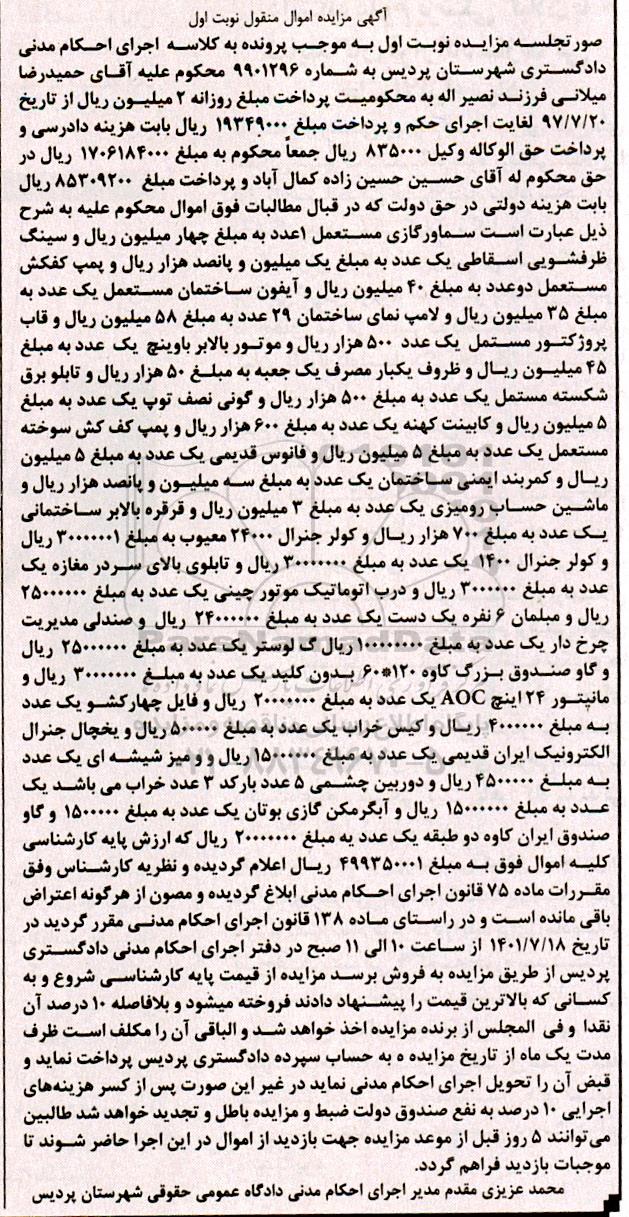 آگهی مزایده اموال منقول نوبت اول
صورتجلسه مزایده نوبت اول به موجب پرونده به کلاسه اجرای احکام مدنی
دادگستری شهرستان پردیس به شماره ۹۹۰۱۲۹۶ محکوم علیه آقای حمیدرضا
میلانی فرزند نصیر اله به محکومیت پرداخت مبلغ روزانه ۲ میلیون ریال از تاریخ
۹۷/۷/۲۰ لغایت اجرای حکم و پرداخت مبلغ ۱۹۳۴۹۰۰۰ ریال بابت هزینه دادرسی و
پرداخت حق الوکاله وکیل ۸۳۵۰۰۰ ریال جمعاً محکوم به مبلغ ۱۷۰۶۱۸۴۰۰۰ ریال در
حق محکوم له آقای حسین حسین زاده کمال آباد و پرداخت مبلغ ۸۵۳۰۹۲۰۰ ریال
بابت هزینه دولتی در حق دولت که در قبال مطالبات فوق اموال محکوم علیه به شرح
ذیل عبارت است سماورگازی مستعمل ۱عدد به مبلغ چهار میلیون ریال و سینگ
ظرفشویی اسقاطی یک عدد به مبلغ یک میلیون و پانصد هزار ریال و پمپ کفکش
مستعمل دوعدد به مبلغ ۴۰ میلیون ریال و آیفون ساختمان مستعمل یک عدد به
مبلغ ۳۵ میلیون ریال و لامپ نمای ساختمان ۲۹ عدد به مبلغ ۵۸ میلیون ریال و قاب
پروژکتور مستمل یک عدد ۵۰۰ هزار ریال و موتور بالابر باوینچ یک عدد به مبلغ
۴۵ میلیون ریال و ظروف یکبار مصرف یک جعبه به مبلغ ۵۰ هزار ریال و تابلو برق
شکسته مستمل یک عدد به مبلغ ۵۰۰ هزار ریال و گونی نصف توپ یک عدد به مبلغ
۵ میلیون ریال و کابینت کهنه یک عدد به مبلغ ۶۰۰ هزار ریال و پمپ کف کش سوخته
مستعمل یک عدد به مبلغ ۵ میلیون ریال و فانوس قدیمی یک عدد به مبلغ ۵ میلیون
ریال و کمربند ایمنی ساختمان یک عدد به مبلغ سه میلیون و پانصد هزار ریال و
ماشین حساب رومیزی یک عدد به مبلغ ۳ میلیون ریال و قرقره بالابر ساختمانی
یک عدد به مبلغ ۷۰۰ هزار ریال و کولر جنرال ۲۴۰۰۰ معیوب به مبلغ ۳۰۰۰۰۰۰۱ ریال
و کولر جنرال ۱۴۰۰ یک عدد به مبلغ ۳۰۰۰۰۰۰۰ ریال و تابلوی بالای سردر مغازه یک
عدد به مبلغ ۳۰۰۰۰۰۰ ریال و درب اتوماتیک موتور چینی یک عدد به مبلغ ۲۵۰۰۰۰۰۰
ریال و مبلمان ۶ نفره یک دست یک عدد به مبلغ ۲۴۰۰۰۰۰۰ ریال و صندلی مدیریت
چرخ دار یک عدد به مبلغ ۱۰۰۰۰۰۰۰ ریال گ لوستر یک عدد به مبلغ ۲۵۰۰۰۰۰۰ ریال
و گاو صندوق بزرگ کاوه ۱۲۰*۶۰ بدون کلید یک عدد به مبلغ ۳۰۰۰۰۰۰۰ ریال و
مانیتور ۲۴ اینچ AOC یک عدد به مبلغ ۲۰۰۰۰۰۰۰ ریال و فایل چهارکشو یک عدد
به مبلغ ۴۰۰۰۰۰۰ ریال و کیس خراب یک عدد به مبلغ ۵۰۰۰۰۰ ریال و یخچال جنرال
الکترونیک ایران قدیمی یک عدد به مبلغ ۱۵۰۰۰۰۰۰ ریال و و میز شیشه ای یک عدد
به مبلغ ۴۵۰۰۰۰۰ ریال و دوربین چشمی ۵ عدد بارکد ۳ عدد خراب می باشد یک
عدد به مبلغ ۱۵۰۰۰۰۰۰ ریال و آبگرمکن گازی بوتان یک عدد به مبلغ ۱۵۰۰۰۰۰ و گاو
صندوق ایران کاوه دو طبقه یک عدد به مبلغ ۲۰۰۰۰۰۰۰ ریال که ارزش پایه کارشناسی
کلیه اموال فوق به مبلغ ۴۹۹۳۵۰۰۰۱ ریال اعلام گردیده و نظریه کارشناس وفق
مقررات ماده ۷۵ قانون اجرای احکام مدنی ابلاغ گردیده و مصون از هرگونه اعتراض
باقی مانده است و در راستای ماده ۱۳۸ قانون اجرای احکام مدنی مقرر گردید در
تاریخ ۱۴۰۱/۷/۱۸ از ساعت ۱۰ الی ۱۱ صبح در دفتر اجرای احکام مدنی دادگستری
پردیس از طریق مزایده به فروش برسد مزایده از قیمت پایه کارشناسی شروع و به
کسانی که بالاترین قیمت را پیشنهاد دادند فروخته میشود و بلافاصله ۱۰ درصد آن
نقدا و فی المجلس از برنده مزایده اخذ خواهد شد و الباقی آن را مکلف است ظرف
مدت یک ماه از تاریخ مزایده ه به حساب سپرده دادگستری پردیس پرداخت نماید و
قبض آن را تحویل اجرای احکام مدنی نماید در غیر این صورت پس از کسر هزینه‌های
اجرایی ۱۰ درصد به نفع صندوق دولت ضبط و مزایده باطل و تجدید خواهد شد طالبین
می‌توانند ۵ روز قبل از موعد مزایده جهت بازدید از اموال در این اجرا حاضر شوند تا
موجبات بازدید فراهم گردد.
محمد عزیزی مقدم مدیر اجرای احکام مدنی دادگاه عمومی حقوقی شهرستان پردیس